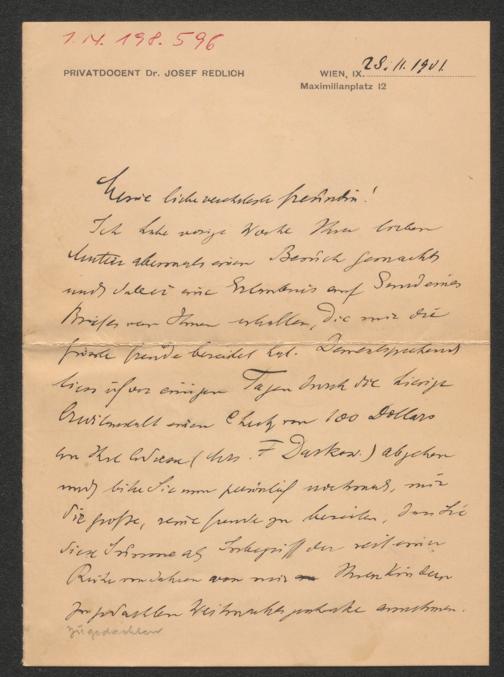 I.N. 198.596
PRIVATDOCENT Dr. JOSEF REDLICH
WIEN, IX. 28.11.1901.
Maximilianplatz 12
Meine liebe verehrteste Freundin!
Ich habe vorige Woche Ihrer lieben
Mutter abermals einen Besuch gemacht
und dabei eine Erlaubnis auf Grund eines
Briefes von Ihnen erhalten, die mir die
Freude bereitet hat. Dementsprechend
liess ich vor einigen Tagen durch die hiesige
Creditanstalt einen Check von 100 Dollars
an Ihre Adresse (Mrs. F Darkow.) abgehen
und bitte Sie nun persönlich nochmals, mir
die große, reine Freude zu bereiten, dass Sie
diese Summe als Inbegriff der seit einer
Reihe von Jahren von mir Ihren Kindern
zugedachten Weihnachtsgeschenke annehmen.
zugedachten